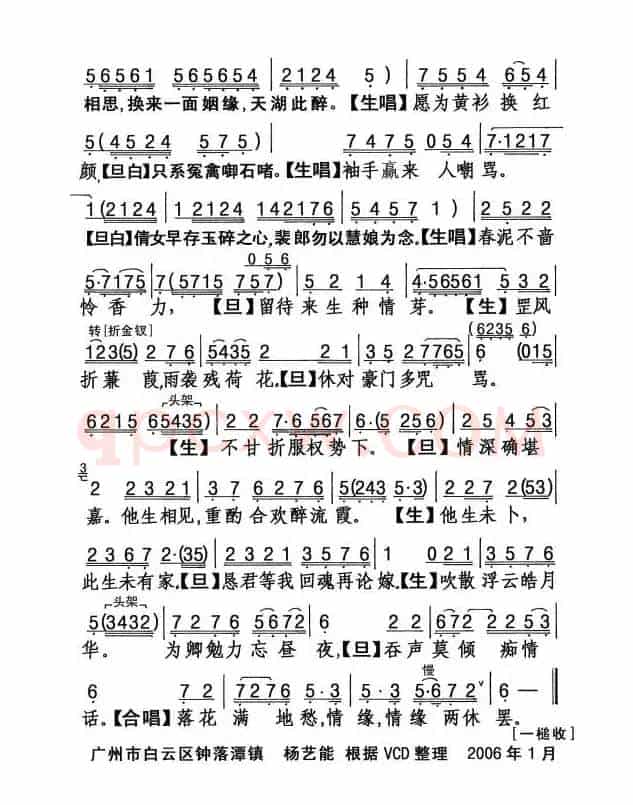 56561 565654 | 2124 5) | 7554 654 |
相思,换来一面姻缘,天湖此醉。【生唱】愿为黄衫 换 红
5(4524 575) | 7475 054 | 7·1217
颜,【旦白】只系冤禽啣石啫。【生唱】袖手赢来 人嘲 骂。
1(2124 | 12124 142176 | 5457 1) | 2522
【旦白】倩女早存玉碎之心,裴郎勿以慧娘为念。【生唱】春泥不啬
056
5·7175 | 7(5715 757 | 5 2 1 4 | 4·56561 532
怜香 力, 【旦】留待来生种情芽。 【生】罡风
转[折金钗]
(6235 6)
123(5) 276 | 5435 2 2 | 212 | 35 2 7765 | 6 (015
折蒹 葭,雨袭残荷 花。【旦】休对豪门多咒 骂。
头架
6215 65435) | 22 7·6567 | 6·(5 256) | 25 453
【生】 不甘折服权势下。 【旦】情深确堪
2 2321 | 37 6276 | 5(243 5·3) | 2722 7 2(53)
嘉。他生相见,重酌合欢醉流霞。 【生】他生未卜,
2367 2·(35) | 2 2 2 2 | 2 3 2 1 | 1 021 | 3575
此生未有家。【旦】恳君等我回魂再论嫁。【生】吹散浮云皓月
头架
5(3432) | 7276 5672 | 6 6 7 | 2·2 | 672 2253
华。 为卿勉力忘昼 夜,【旦】吞声莫倾 痴情
慢
6 72 | 7276 5·3 | 5·3 | 5·672 7 | 6 - ‖
话。【合唱】落花 满 地愁,情缘,情缘 两休 罢。
[一槌收]
广州市白云区钟落潭镇 杨艺能 根据VCD整理 2006年1月
qpcxw.COM